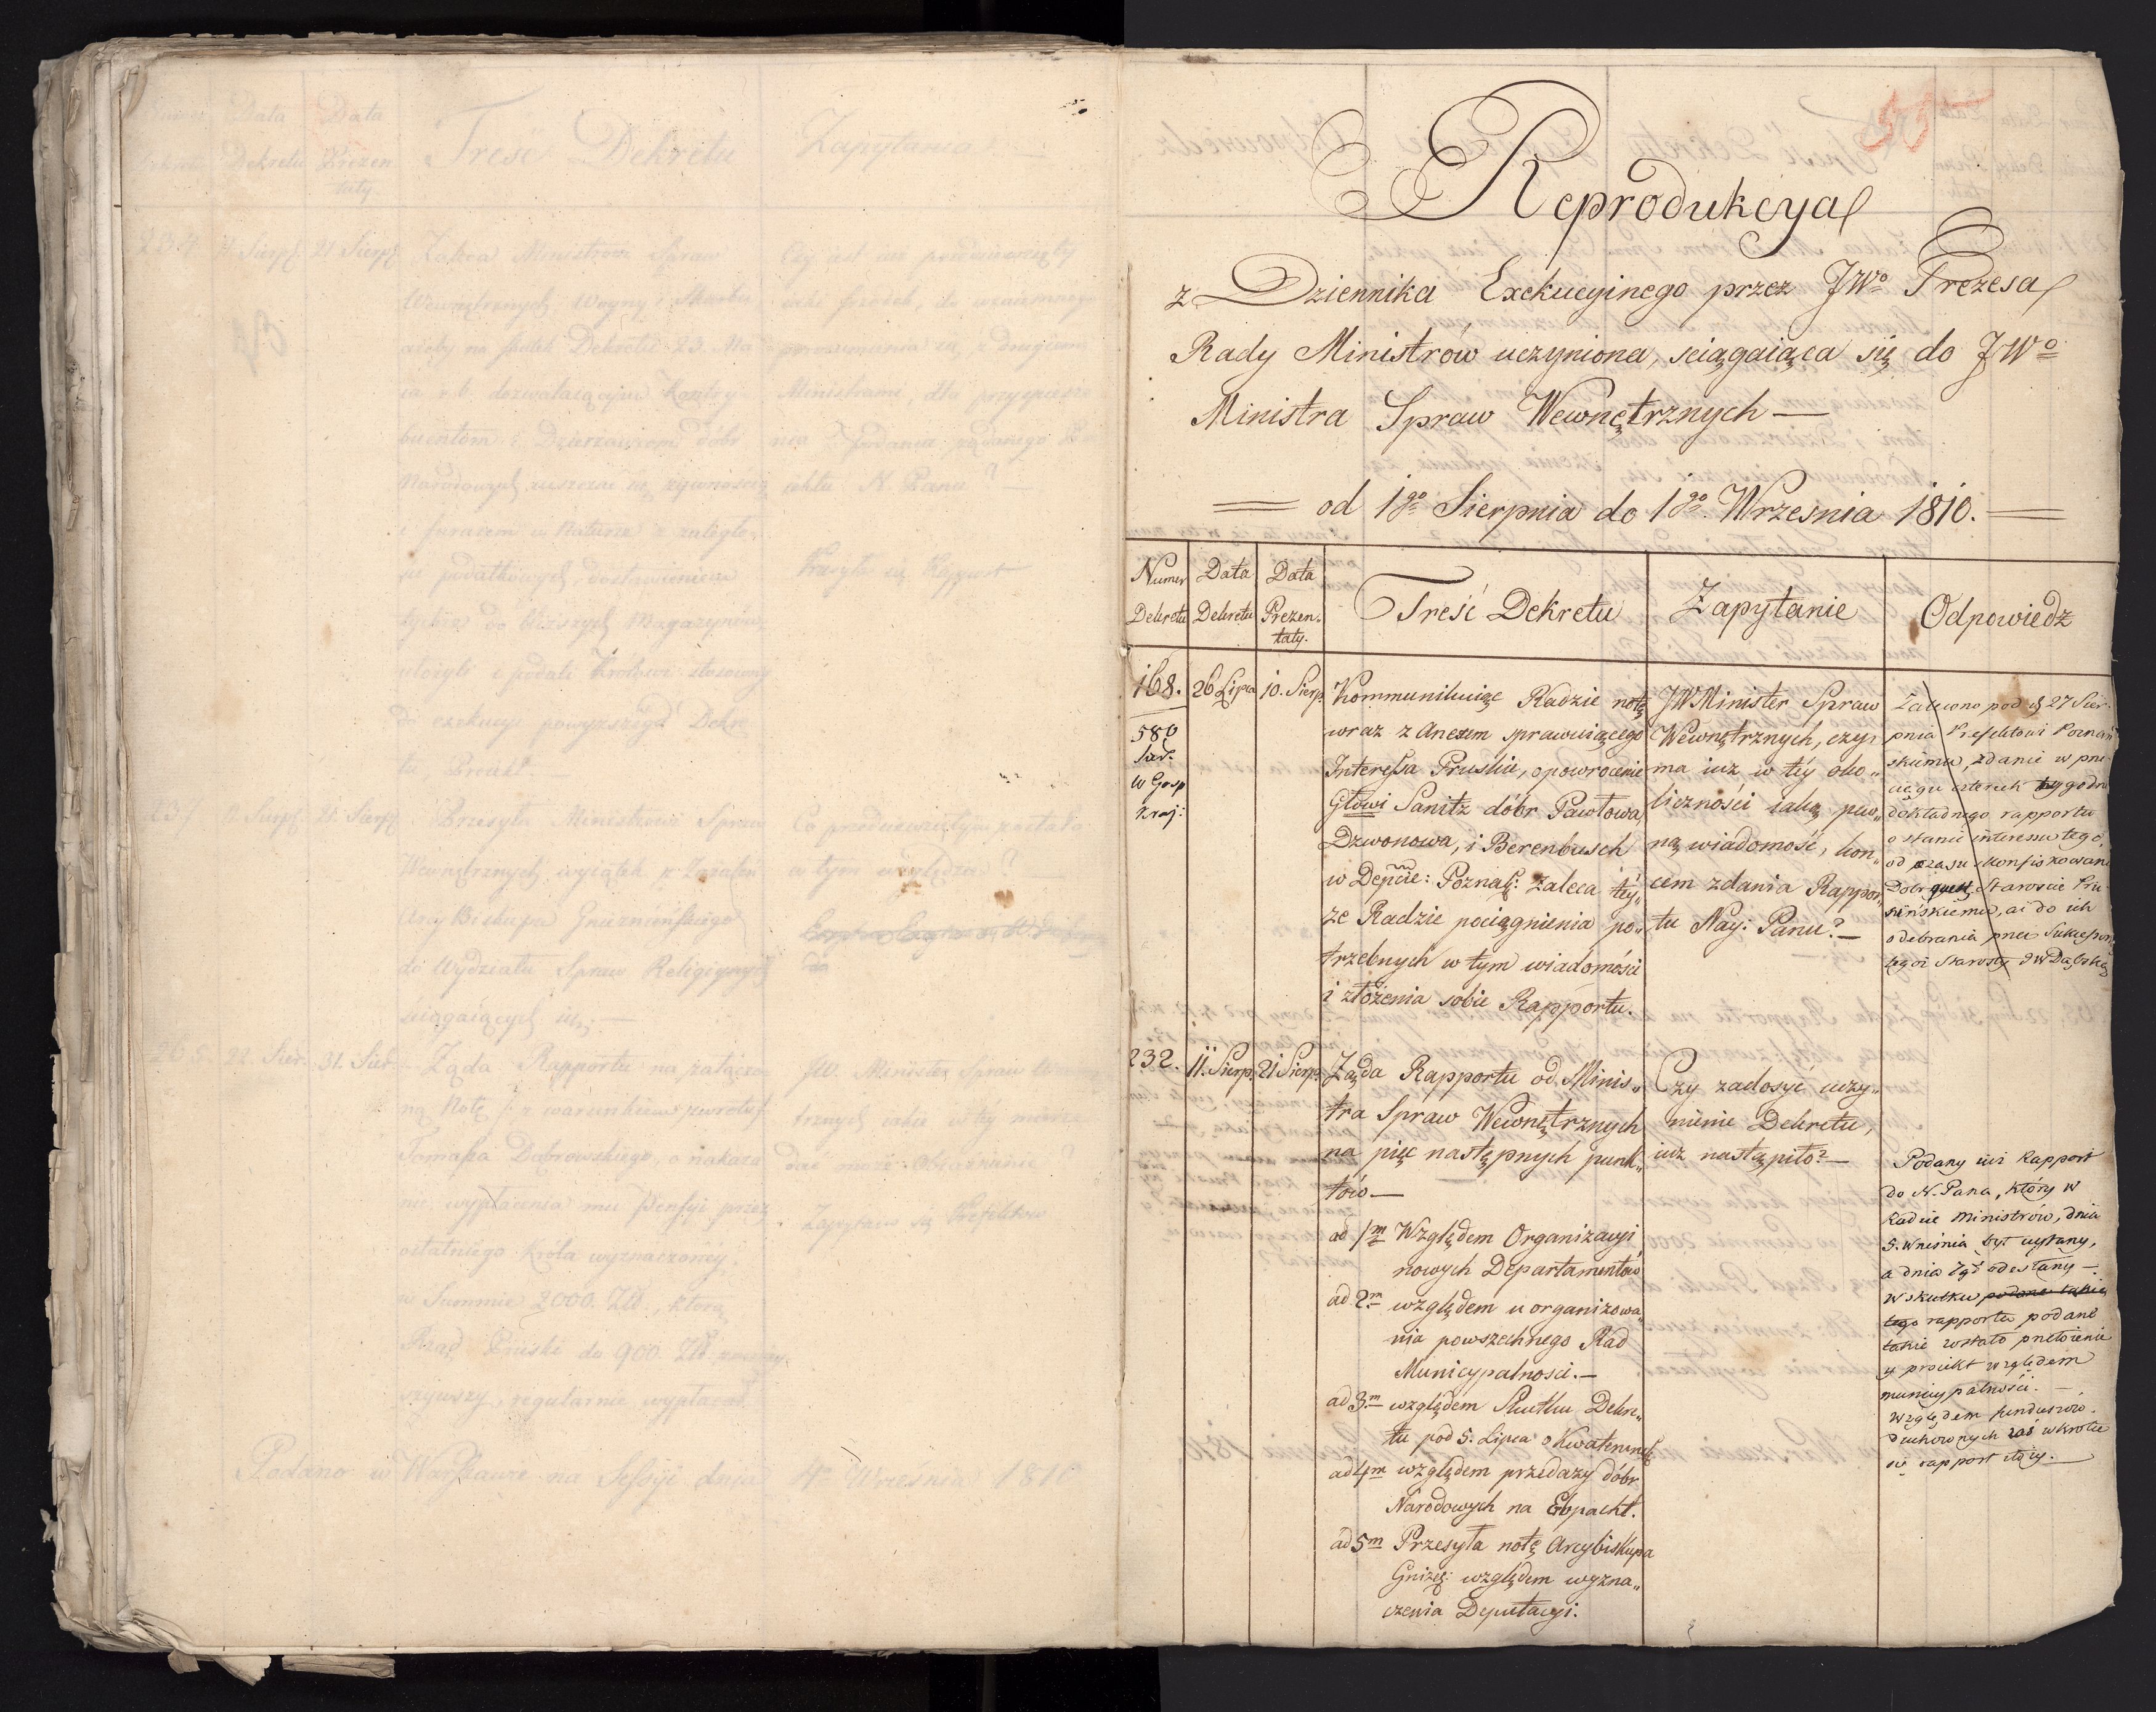 Numer
Dekretu
Data
Dekretu
Data
Prezen
taty.
Treść Dekretu
Zapytania
234
21 Sierp.
Zaleca Ministrom Spraw
Wewnętrznych Woyny i Skarbu,
ażeby na skutek Dekretu 23. Ma
ia r.b. dozwalaiącym Kontry-
buentom i Dzierzawcom dóbr
Narodowych uiszczać się żywnością
i furażem w naturze z zaległo-
ści podatkowych dostawieniem
tychże do bliższych Magazynów,
ułożyli i podali Królowi stosowny
do exekucyi powyższego Dekre
tu, Proiekt.—
Czy iest iuż przedsięwzięty
iaki środek, do wzaiemnego
porozumienia się z drugiemi
Ministrami, dla przyspiesze
nia podania żądanego Pro
iektu N. Panu?—
Przesyła Ministrowi Spraw
Wewnętrznych wyciątek z Zażaleń
Arcy Biskupa Gnieznieńskiego
do Wydziału Spraw Religiynych
ściągaiących się.—
Co przedsięwziętym zostało
w tym względzie?
265.
22. Sier.
31. Sier.
Żąda Rapportu na załączo
ną Notę /: z warunkiem zwrotu :/
Tomasza Dąbrowskiego, o nakaza
nie wypłacenia mu Pensyi przez
ostatniego Króla wyznaczoney.
w Summie 2000. Zł., którą
Rząd Pruski do 900. Zł. zmniey,
szywszy, regularnie wypłacał.
JW. Minister Spraw Wewnę
trznych iakie w tey mierze
dać może Obiaśnienie?
Podano w Warszawie na Sessyi dnia 4go Września 1810
55
Reprodukcya
z Dziennika Exekucyinego przez JWo Prezesa
Rady Ministrów uczyniona, ściągaiąca się do JWo
Ministra Spraw Wewnętrznych—
= od 1go Sierpnia do 1go Wrzesnia 1810. =
Numer
Dekretu
Data
Dekretu
Data
Prezen.
taty.
Treść Dekretu
Zapytanie
Odpowiedz
168.
580
W Gosp
Kraj:
26 Lipca
10. Sierp.
Kommunikuiąc Radzie notę
wraz z Anexem sprawuiącego
Interessa Pruskie, o powrócenie
Głowi Sanitz dóbr Pawłowa,
Dzwonowa, i Berenbusch
w Depcie: Poznań: Zaleca tey„
że Radzie pociągnienia po„
trzebnych w tym wiadomości
i złożenia sobie Rapportu.
JWMinister Spraw
Wewnętrznych, czy
ma iuż w tey oko„
liczności iaką pew„
ną wiadomość, koń„
cem zdania Rappor„
tu Nay: Panu?—
Zalecono pod d 27 Sier-
pnia Prefektowi Poznań
skiemu, zdanie w prze
ciągu czterech tygodni
dokładnego rapportu
o stanie interessu tego,
od czasu skonfiskowania
Dóbr Staroście
, aż do ich
odebrania przez Sukcessorów
tegoż Starosty JW Dąbską
232.
11. Sierp.
21 Sierp.
Żąda Rapportu od Minis„
tra Spraw Wewnętrznych
na pięć następnych punk„
tów—
ad 1m Względem Organizacyi
nowych Departamentów
ad 2m względem uorganizowa„
nia powszechnego Rad
Municypalnosci.—
ad 3m względem Skutku Dekre„
tu pod 5. Lipca o Kwaterunek
ad 4m względem przedazy dóbr
Narodowych na Erbpacht.
ad 5m Przesyła notę Arcybiskupa
Gniez: względem wyzna„
czenia Deputacyi.
Czy zadosyć uczy„
nienie Dekretu,
iuż nastąpiło?—
Podany iuż Rapport
do N. Pana, który w
Radzie Ministrów, dnia
5. Września był czytany,
a dnia 7go odesłany—
W skutku podane takie
tego rapportu podane
takie zostało przełożenie
y proiekt względem
municypalności.—
Względem funduszów
Duchownych zaś wkrótce
się rapport złoży.—